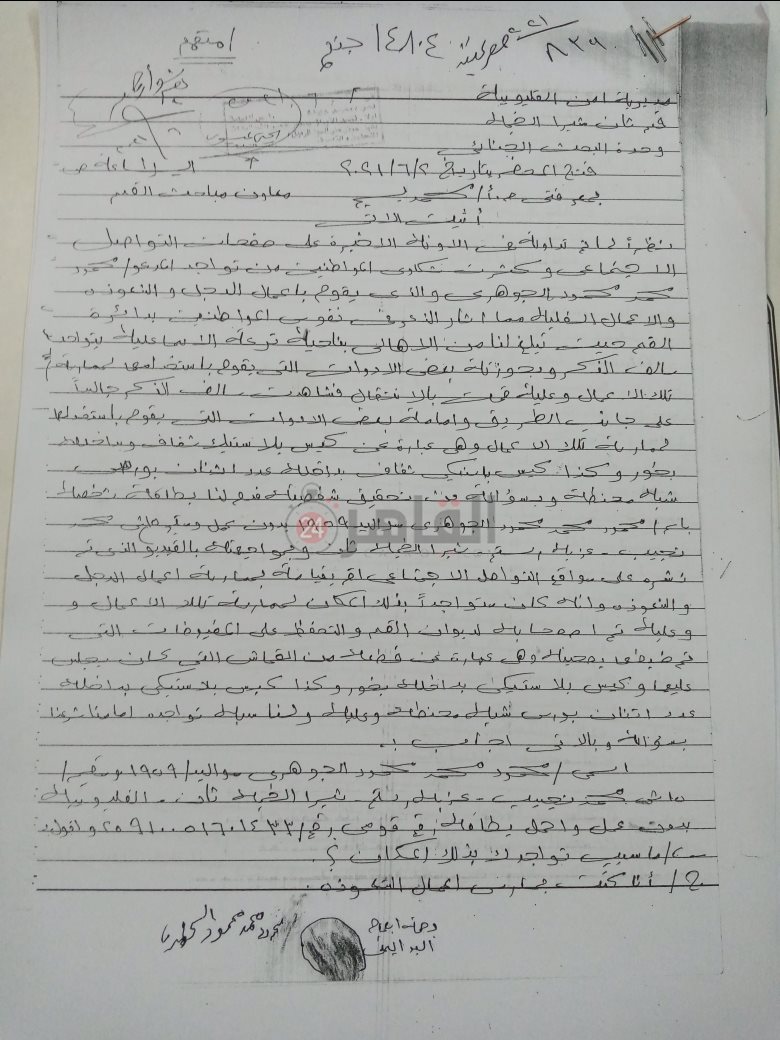 ١٤٨٠٤ جنح
مديرية امن القليوبية
قسم ثان شبرا الخيمه
وحدة البحث الجنائى
فتح المحضر بتاريخ ٢٠٢١/٦/٢ الساعة ص
بمعرفتى معاون مباحث القسم
أثبت الاتى
نظراً لما تم تداوله فى الاونة الاخيرة على صفحات التواصل
الاجتماعى وكثرت شكاوى المواطنين من تواجد المدعو/ محمود
محمد محمود الجوهرى والذى يقوم باعمال الدجل والشعوذه
والاعمال السفلية مما اثار الذعر فى نفوس المواطنين بدائرة
القسم حيث تبلغ لنا من الاهالى بناحية ترعة الاسماعيلية بتواجد
سالف الذكر وبحوزته بعض الادوات التى يقوم باستخدامها لممارسة
تلك الاعمال وعليه قمت بالانتقال فشاهدت سالف الذكر جالساً
على جانب الطريق وامامه بعض الادوات التى يقوم باستخدامها
لممارسة تلك الاعمال وهى عبارة عن كيس بلاستيك شفاف وبداخله
بخور وكذا كيس بلاستيكى شفاف بداخله عدد اثنان بورص
شبه محنطه وبسؤاله عن تحقيق شخصيته قدم لنا بطاقة شخصيه
باسم/ محمود محمد محمود الجوهرى مواليد ١٩٥٩ بدون عمل ومقيم محمد
نجيب - عزبة رستم - شبرا الخيمه وبمواجهته بالفيديو الذى تم
نشره على مواقع التواصل الاجتماعى اقر بقيامه بممارسة اعمال الدجل
والشعوذه وانه كان متواجداً بذلك المكان لممارسة تلك الاعمال و
وعليه تم اصطحابه لديوان القسم والتحفظ على المضبوطات التى
تم ضبطها بصحبته وهى عبارة عن قطعة من القماش التى كان يجلس
عليها وكيس بلاستيكى بداخله بخور وكذا كيس بلاستيكى بداخله
عدد اثنان بورص شبه محنطه وعليه ولمناسبة تواجده امامنا شرعنا
بسؤاله وبالاتى اجاب :
اسمى/ محمود محمد محمود الجوهرى مواليد/ ١٩٥٩ ومقيم/
محمد نجيب - عزبة رستم - شبرا الخيمه ثان - القليوبية
بدون عمل واحمل بطاقة رقم قومى
س/ ما سبب تواجدك بذلك المكان ؟
ج/ أنا كنت بمارس اعمال الشعوذه .
القاهرة 24